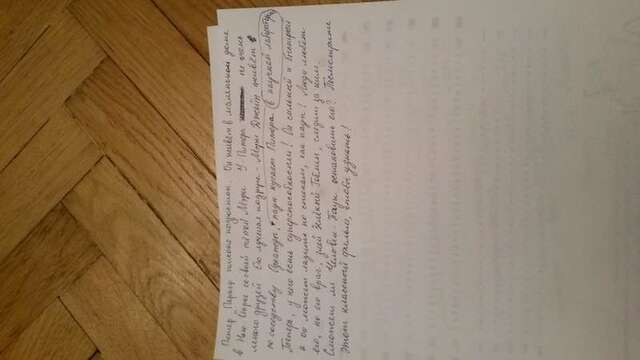 Питер Паркер типово неудачник. Он живёт в маленьком доме
в Нью Йорке со своей тётей Мэри. У Питера не очень
много друзей. Его лучшая подруга - Мэри Джейн живёт
по соседству. Однажды, паук кусает Питера (в научной лаборатории
Теперь, у него есть суперспособности! Он сильный и быстрый
а он может лазить по стенам, как паук! Люди любят
его, но его враг, злой Зелёный Гоблин, следит за ним.
Сможет ли Человек-Паук остановить его? Посмотрите
этот классный фильм, чтобы узнать!